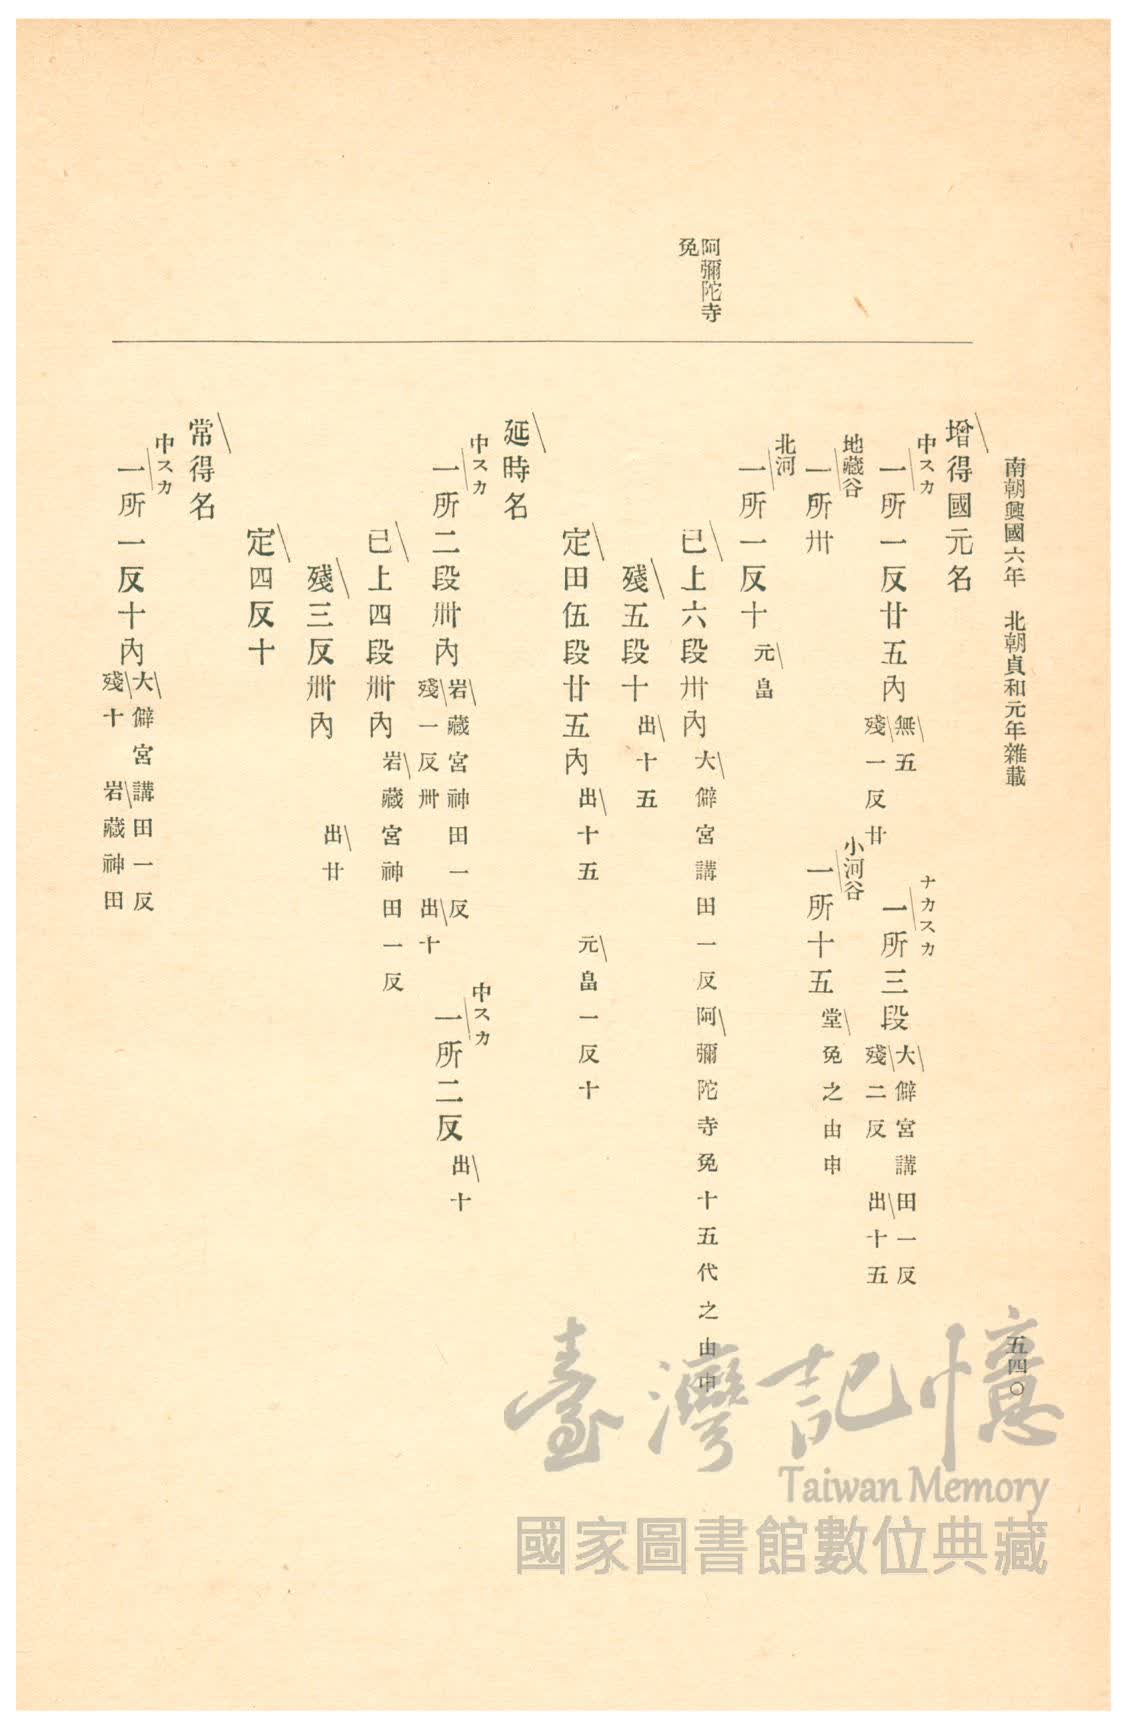 南朝興國六年 北朝貞和元年雜載
五四〇
阿彌陀寺
免
增得國元名
中スカ
一所一反廿五內
無五
殘一反廿
ナカスカ
一所三段
大僻宮講田一反
殘二反 出十五
地藏谷
一所卅
小河谷
一所十五 堂免之由申
北河
一所一反十 元畠
已上六段卅內 大僻宮講田一反阿彌陀寺免十五代之由申
殘五段十 出十五
定田伍段廿五內 出十五 元畠一反十
延時名
中スカ
一所二段卌內
岩藏宮神田一反
殘一反卌 出十
中スカ
一所二反 出十
已上四段卌內 岩藏宮神田一反
殘三反卌內 出廿
定四反十
常得名
中スカ
一所一反十內
大僻宮講田一反
殘十 岩藏神田
臺灣記憶
Taiwan Memory
國家圖書館數位典藏